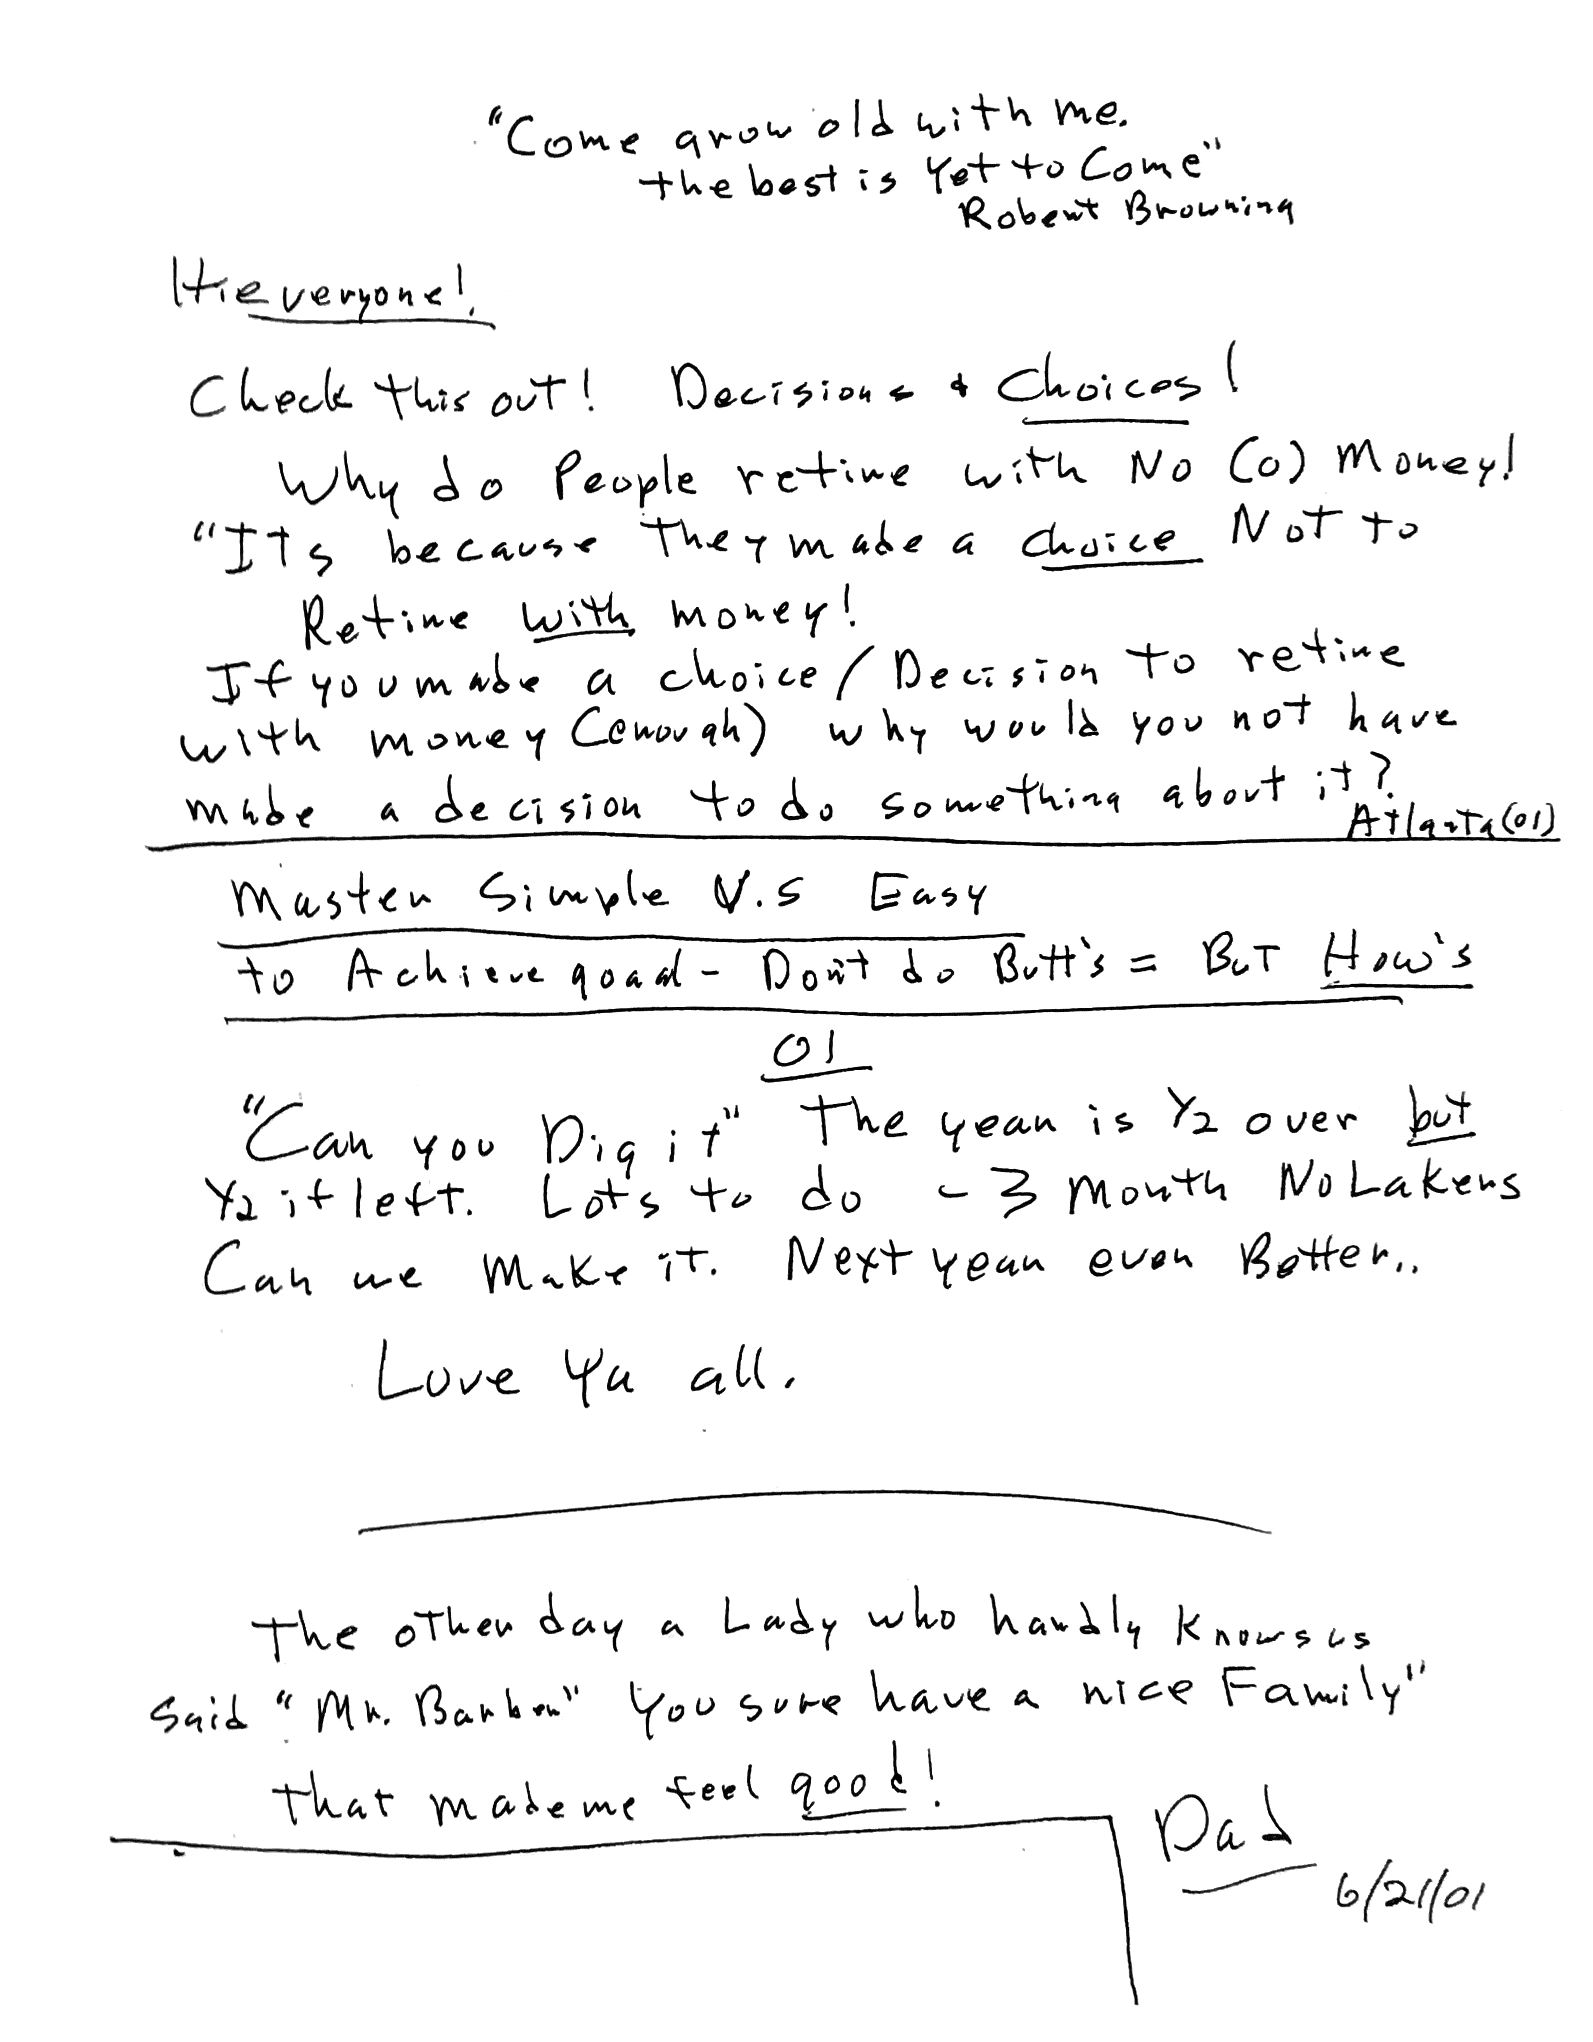 "Come grow old with me.
the best is Yet to Come"
Robert Browning
Hi everyone!
Check this out! Decisions & Choices!
Why do People retire with No (0) Money!
"Its because They made a choice Not to
Retire with money!
If you made a choice/Decision to retire
with money (enough) why would you not have
made a decision to do something about it?
Atlanta (01)
Master Simple V.S Easy
to Achieve goaal - Don't do Butt's = BuT How's
01
"Can you Dig it" The year is 1/2 over but
1/2 if left. Lots to do - 3 month No Lakers
Can we Make it. Next year even Better..
Love Ya all.
The other day a Lady who hardly knows us
Said "Mr. Barber" You sure have a nice Family"
That made me feel good!
Dad
6/21/01